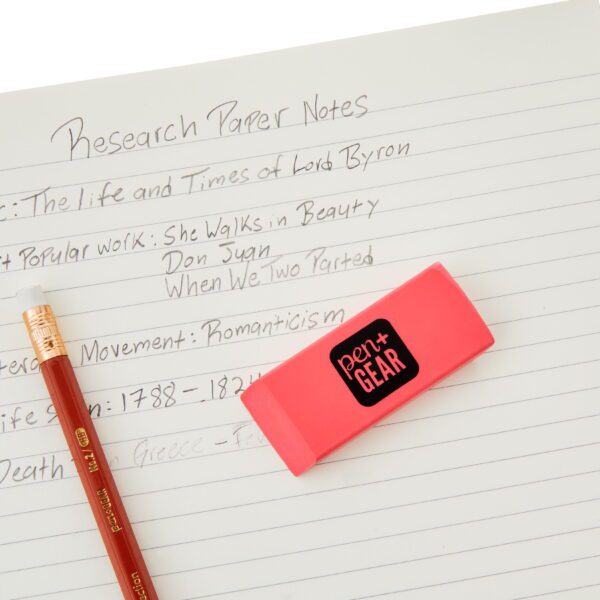 Research Paper Notes
c: The life and Times of Lord Byron
t Popular work: She Walks in Beauty
Don Juan
When We Two Parted
Movement: Romanticism
ife n: 1788 - 1824
Death Greece - Fe
pen+
GEAR
No. 2 / HB
pen+GEAR
ction